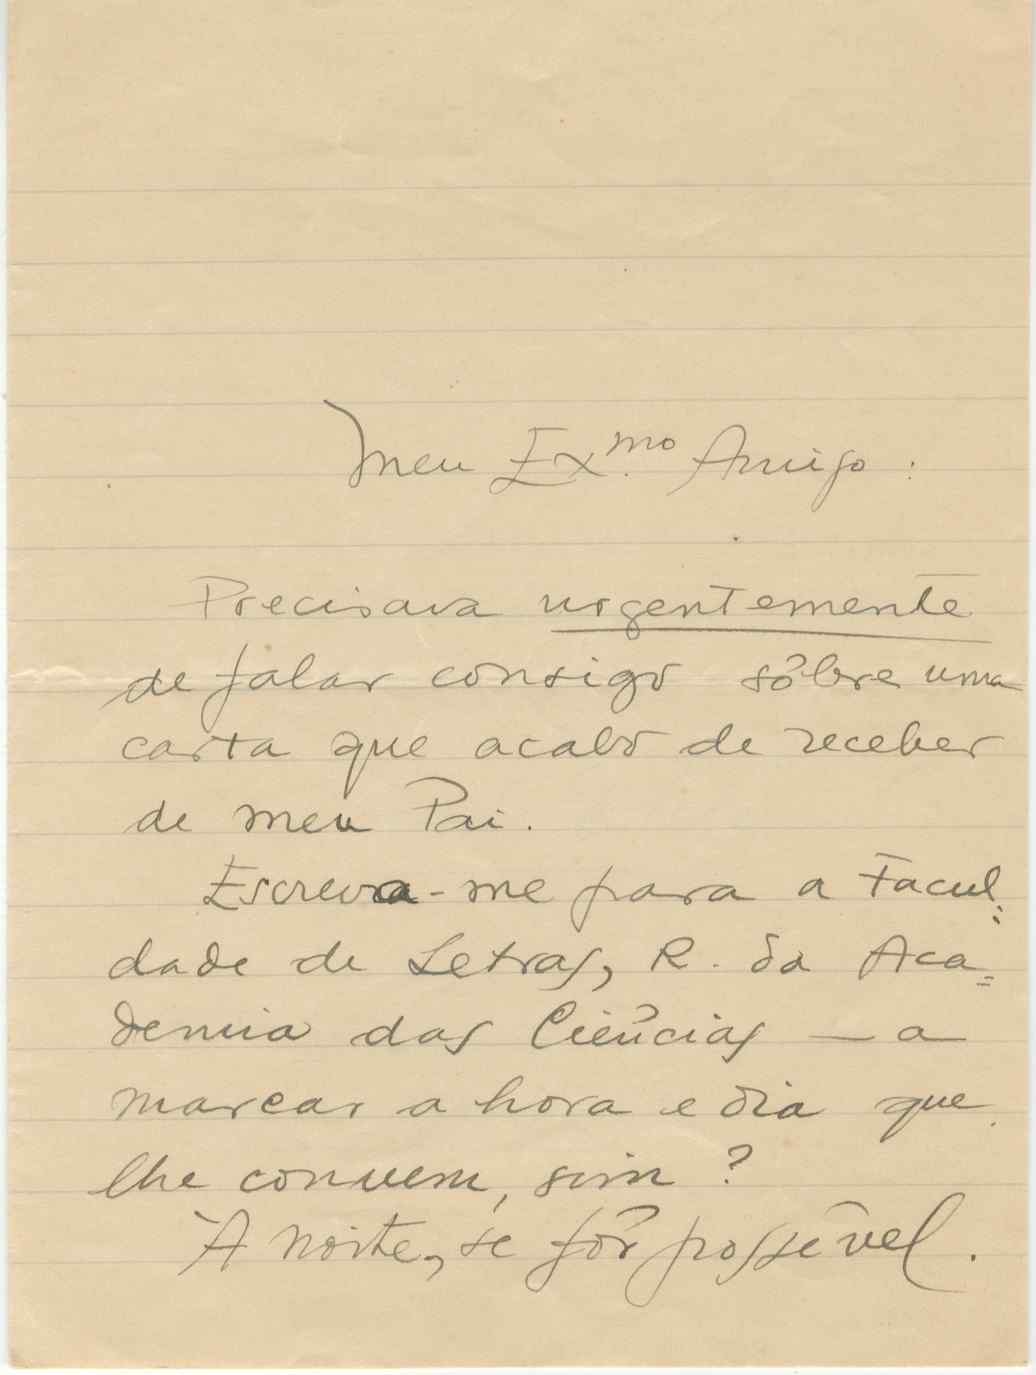 Meu Ex.mo Amigo:
Precisava urgentemente
de falar consigo sôbre uma
carta que acabo de receber
de meu Pai.
Escreva-me para a Facul=
dade de Letras, R. da Aca=
demia das Ciências — a
marcar a hora e dia que
lhe convem, sim?
À noite, se fôr possível.